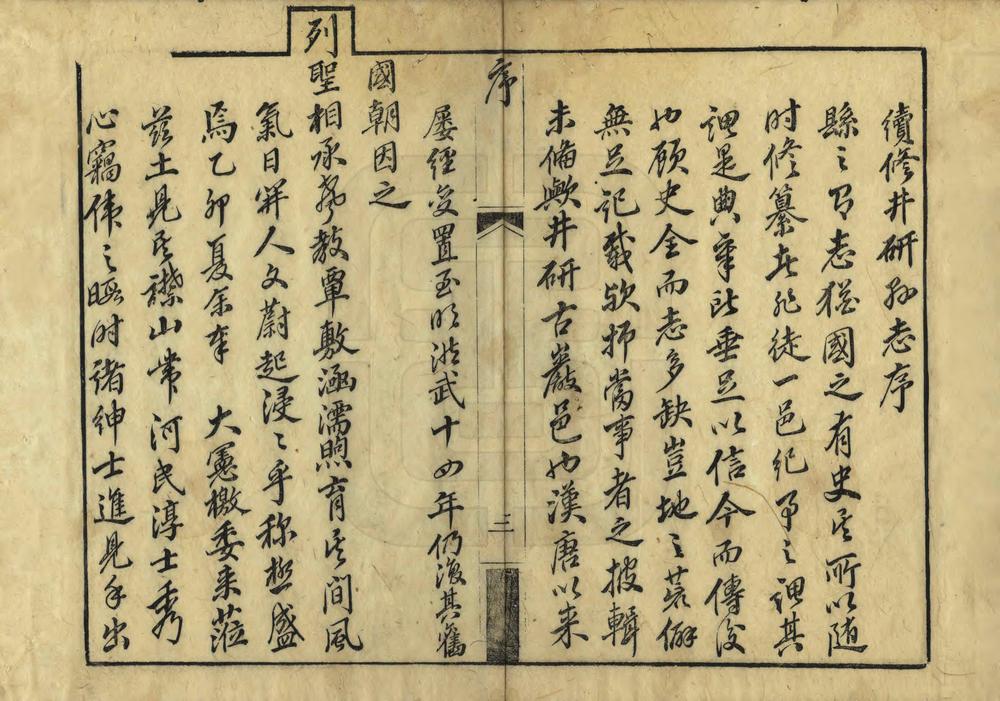 續修井研縣志序
縣之有志猶國之有史其所以隨
时修纂者非徒一邑紀事之謂其
謂是典章所垂足以信今而傳後
也顧史全而志多缺豈地之荒僻
無足记載欤抑當事者之披輯
未備歟井研古巖邑也漢唐以来
序
三
屡經变置至明洪武十四年仍復其舊
國朝因之
列聖相承聲教覃敷涵濡煦育其间風
氣日開人文蔚起浸〻乎称極盛
焉乙卯夏余奉 大憲檄委来蒞
兹土見其襟山带河民淳士秀
心竊偉之暇时諸紳士進見手出